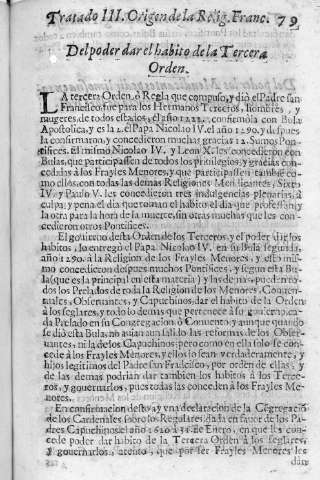 Tratado III. Origen de la Relig. Franc. 79
Del poder dar el habito de la Tercera
Orden.
LA tercera Orden, ò Regla que compuso, y diò el Padre san
Francisco, fue para los Hermanos Terceros, hombres, y
mugeres, de todos estados, el año 1221. confirmòla con Bula
Apostolica, y es la 2. el Papa Nicolao IV. el año 1290. y despues
la confirmaron, y concedieron muchas gracias 12. Sumos Pon-
tifices. El mismo Nicolao IV. y Leon X. les concedieron con
Bulas, que participassen de todos los privilegios, y gracias con-
cedidas à los Frayles Menores, y que participassen tambien co-
mo ellos, con todas las demas Religiones Mendicantes, Sixto
IV. y Paulo V. les concedieron tres indulgencias plenarias, à
culpa, y pena el dia que toman el habito el dia que professan, y
la otra para la hora de la muerte, sin otras muchas que les con-
cedieron otros Pontifices.
El govierno de la Orden de los Terceros, y el poder dar los
habitos, lo entregò el Papa Nicolao IV. en su Bula segunda,
año 1290. à la Religion de los Frayles Menores, y esto mis-
mo concedieron despues muchos Pontifices, y segun esta Bu-
la (que es la principal en esta materia) y las demàs, pueden to-
dos los Prelados de toda la Religion de los Menores, Conven-
tuales, Observantes, y Capuchinos, dar el habito de la Orden
à los seglares, y todo lo demàs que pertenece à su govierno, ca-
da Prelado en su Congregacion, ò Convento, y aunque quando
se diò esta Bula, no avian aun salido las reformas, de los Obser-
vantes, ni la de los Capuchinos, pero como en ella solo se con-
cede à los Frayles Menores, y ellos lo sean verdaderamente, y
hijos legitimos del Padre san Francisco, por orden de ellas, y
de las demas podrian dar tambien los habitos à los Terce-
ros, y governarlos, pues todas las conceden à los Frayles Me-
nores.
En confirmacion desto, ay una declaracion de la Cõgregaciõ
de los Cardenales sobre los Regulares, dada en favor de los Pa-
dres Capuchinos, el año 1620 à 31. de Enero, en que les con-
cede poder dar habito de la Tercera Orden à los seglares,
y governarlos, atento, que por ser Frayles Menores les
dan